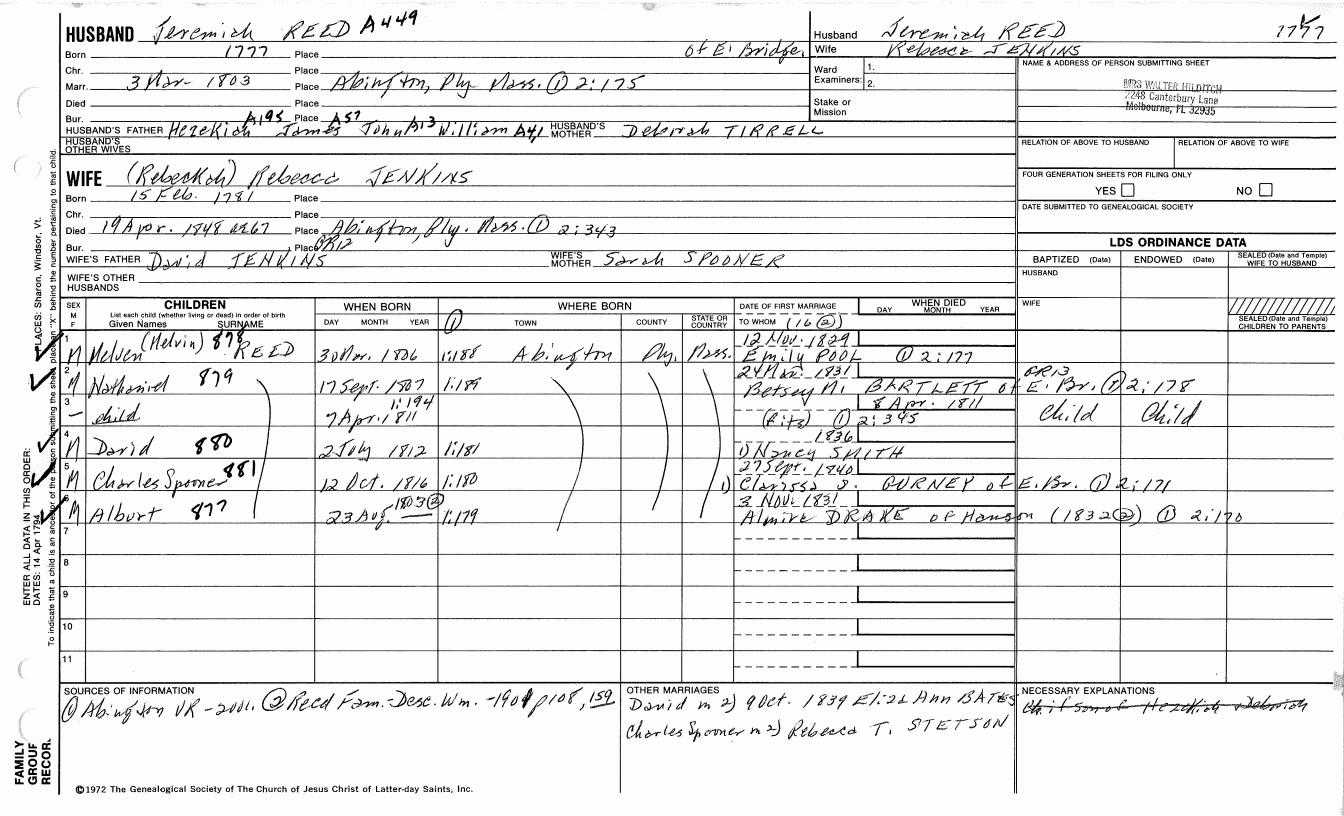 HUSBAND Jeremiah REED A449
Born 1777 Place of E. Bridge.
Chr. Place
Marr. 3 Mar- 1803 Place Abington, Ply. Mass. ① 2:175
Died Place
Bur. Place
HUSBAND'S FATHER Hezekiah A195 James A57 John A13 William A41 HUSBAND'S MOTHER Deborah TIRRELL
HUSBAND'S OTHER WIVES
Husband Jeremiah REED 1777
Wife Rebecca JENKINS
Ward Examiners: 1.
2.
Stake or Mission
NAME & ADDRESS OF PERSON SUBMITTING SHEET
MRS WALTER HILDITCH
2248 Canterbury Lane
Melbourne, FL 32935
RELATION OF ABOVE TO HUSBAND RELATION OF ABOVE TO WIFE
FOUR GENERATION SHEETS FOR FILING ONLY
YES NO
DATE SUBMITTED TO GENEALOGICAL SOCIETY
WIFE (Rebeckah) Rebecca JENKINS
Born 15 Feb. 1781 Place
Chr. Place
Died 19 Apr. 1848 ae67 Place Abington, Ply. Mass. ① 2:343
Bur. Place GR12
WIFE'S FATHER David JENKINS WIFE'S MOTHER Sarah SPOONER
WIFE'S OTHER HUSBANDS
LDS ORDINANCE DATA
BAPTIZED (Date) ENDOWED (Date) SEALED (Date and Temple) WIFE TO HUSBAND
HUSBAND
WIFE
SEALED (Date and Temple) CHILDREN TO PARENTS
SEX M F CHILDREN WHEN BORN WHERE BORN DATE OF FIRST MARRIAGE WHEN DIED
List each child (whether living or dead) in order of birth
Given Names SURNAME DAY MONTH YEAR ① TOWN COUNTY STATE OR COUNTRY TO WHOM (16②) DAY MONTH YEAR
1 M Melven (Melvin) 878 REED 30 Mar. 1806 1:188 Abington Ply. Mass. 12 Nov. 1829
Emily POOL ① 2:177
2 M Nathaniel 879 17 Sept. 1807 1:189 24 Mar. 1831 GR13
Betsey M. BARTLETT of E. Br. ① 2:178
3 - child 7 Apr. 1811 1:194 8 Apr. 1811 Child Child
(fits) ① 2:345
4 M David 880 2 July 1812 1:181 1836
1) Nancy SMITH
5 M Charles Spooner 881 12 Oct. 1816 1:180 27 Sept. 1840
1) Clarissa S. GURNEY of E. Br. ① 2:171
6 M Alburt 877 23 Aug. 1803② 1:179 3 Nov. 1831
Almira DRAKE of Hanson (1832②) ① 2:170
7
8
9
10
11
SOURCES OF INFORMATION
① Abington VR-2vol. ② Reed Fam.-Desc. Wm. -1901 p108, 159
OTHER MARRIAGES
David m 2) 9 Oct. 1839 Eliza Ann BATES
Charles Spooner m 2) Rebecca T. STETSON
NECESSARY EXPLANATIONS
son of Hezekiah Deborah
©1972 The Genealogical Society of The Church of Jesus Christ of Latter-day Saints, Inc.
FAMILY GROUP RECOR.
ENTER ALL DATA IN THIS ORDER:
DATES: 14 Apr 1794
PLACES: Sharon, Windsor, Vt.
To indicate that a child is an ancestor of the person submitting the sheet, place an "X" behind the number pertaining to that child.